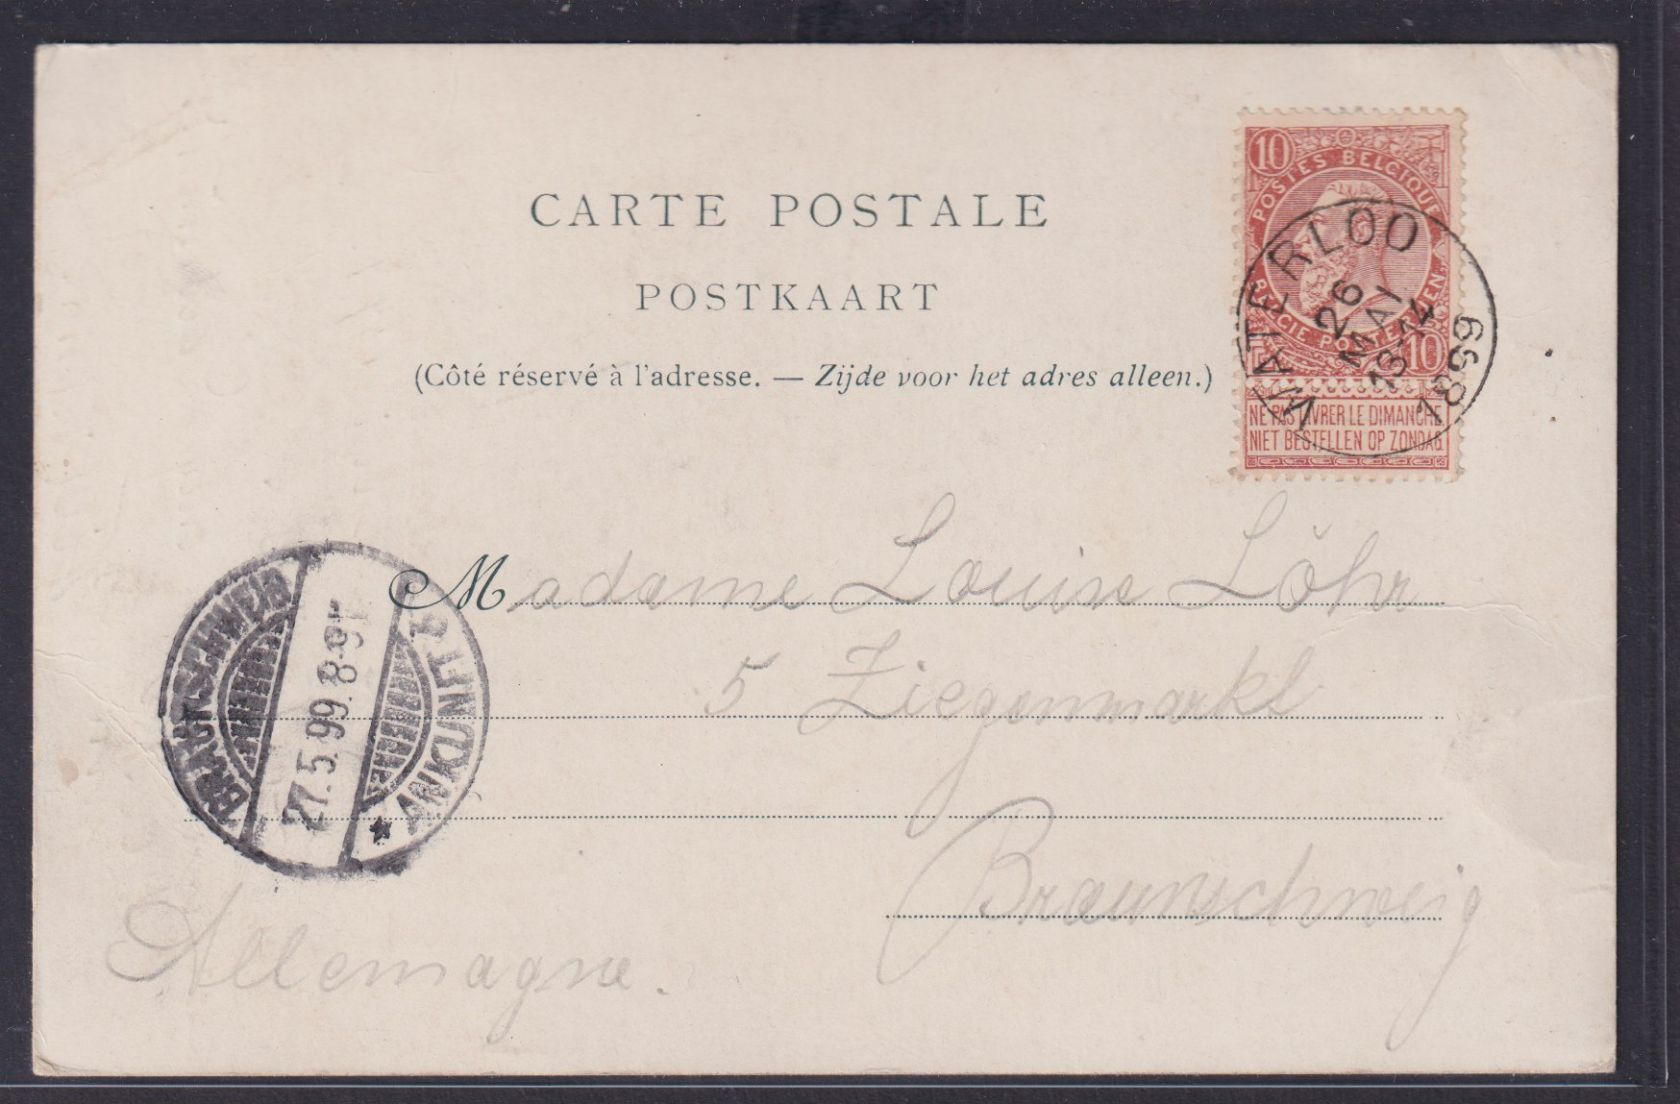 CARTE POSTALE
POSTKAART
(Côté réservé à l'adresse. — Zijde voor het adres alleen.)
10
POSTES BELGIQUE
BELGIE POSTERIJEN
10
NE PAS LIVRER LE DIMANCHE
NIET BESTELLEN OP ZONDAG
WATERLOO
26
MAI
1899
Madame Louise Löhr
5 Ziegenmarkt
Braunschweig
Allemagne.
BRAUNSCHWEIG
27.5.99.8-9
* ANKUNFT